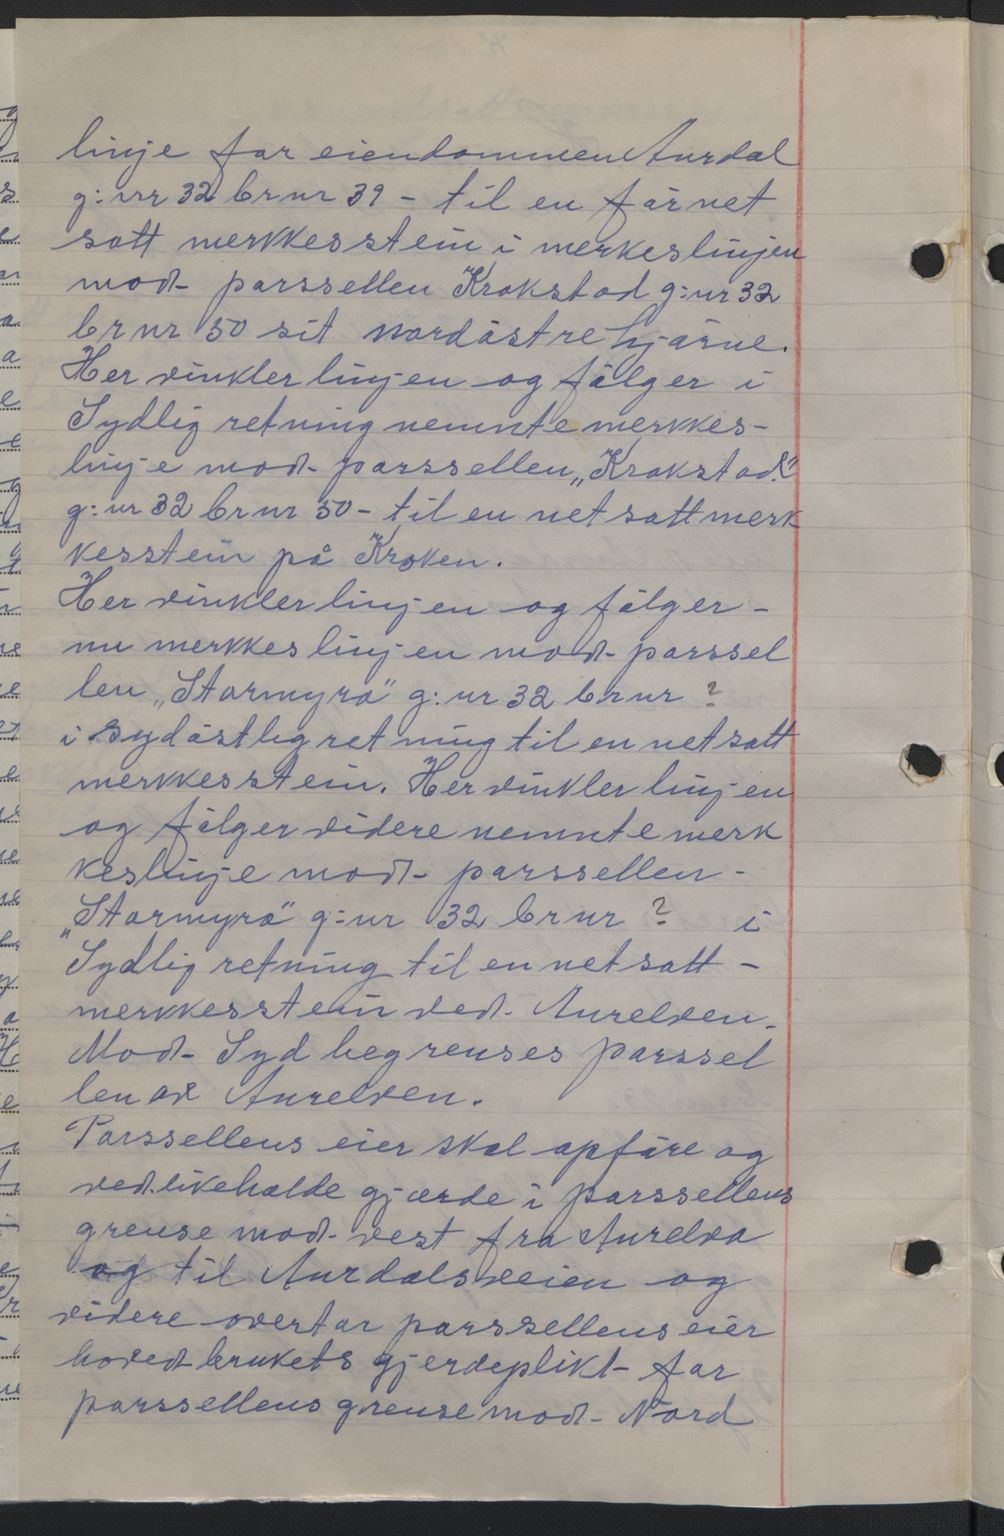 linje for eiendommen Aurdal
g:nr 32 brnr 39 – til en før net
satt merkkesstein i merkeslinjen
mod- parssellen Krokstad g:nr 32
br nr 50 sit nordøstre hjørne.
Her vinkler linjen og følger i
Sydlig retning nemnte merkkes-
linje mod- parssellen „Krokstad“
g:nr 32 br nr 50 – til en net satt merk
kesstein på Kroken.
Her vinkler linjen og følger –
nu merkkeslinjen mod- parssel
len „Stormyra“ g:nr 32 brnr ?
i sydøstlig retning til en net satt
merkkesstein. Her vinkler linjen
og følger videre nemnte merk
keslinje mod- parssellen –
„Stormyra“ g:nr 32 br nr ? i
Sydlig retning til en net satt –
merkkesstein ved- Aurelven.
Mod- Syd begrenses parssel
len av Aurelven.
Parssellens eier skal opføre og
vedlikeholde gjærde i parssellens
grense mod- vest fra Aurelva
og til Aurdalsveien og
videre overtar parssellens eier
hovedbrukets gjerdeplikt for
parssellens grense mod- Nord